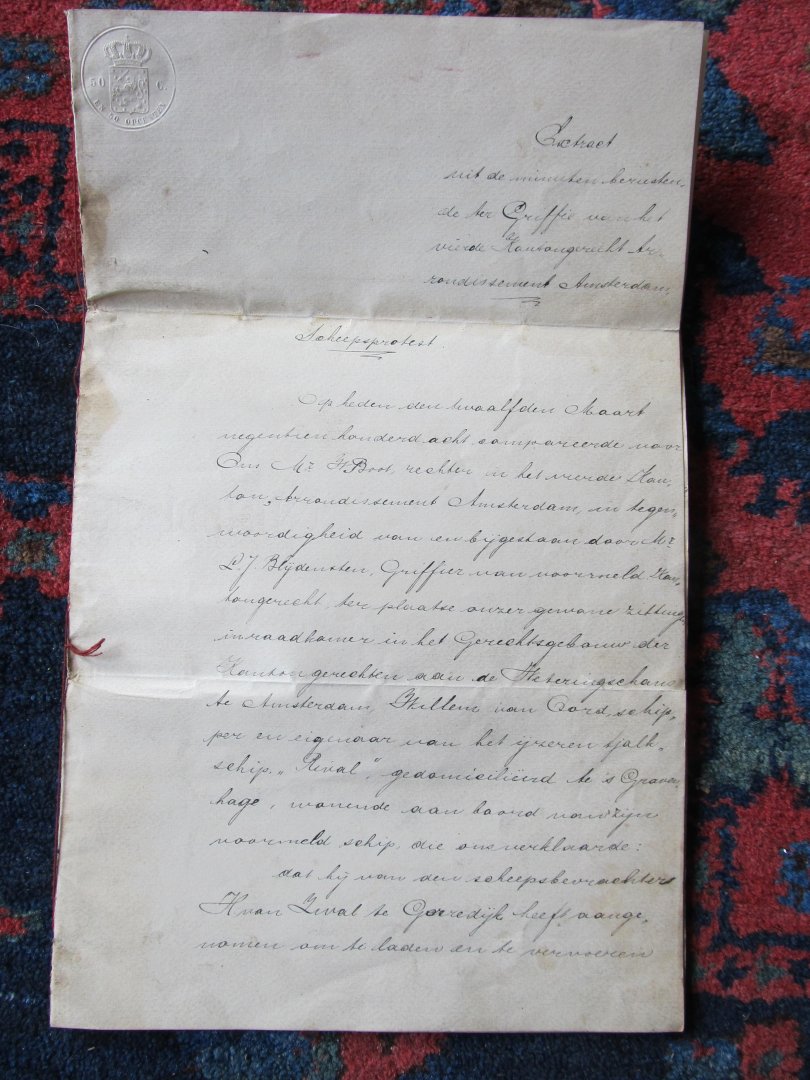 50 C.
EN 50 OPCENTEN
Extract
uit de minuten berusten,
de ter Griffie van het
vierde Kantongerecht Ar-
rondissement Amsterdam,
Scheepsprotest.
Op heden den twaalfden Maart
negentien honderd acht compareerde voor
Ons Mr. H Boot, rechter in het vierde Kan-
ton, Arrondissement Amsterdam, in tegen-
woordigheid van en bijgestaan door Mr.
P.J. Blijdensten, Griffier van voormeld Kan-
tongerecht, ter plaatse onzer gewone zittingen
in raadkamer in het Gerechtsgebouw der
Kantongerechten aan de Weteringschans
te Amsterdam, Willem van Oord, schip,
per en eigenaar van het ijzeren tjalk-
schip "Rival", gedomiciliëerd te 's Graven,
hage, wonende aan boord van zijn
voormeld schip, die ons verklaarde:
dat hij van den scheepsbevrachters
H van Zwal te Gorredijk heeft aange,
nomen om te laden en te vervoeren